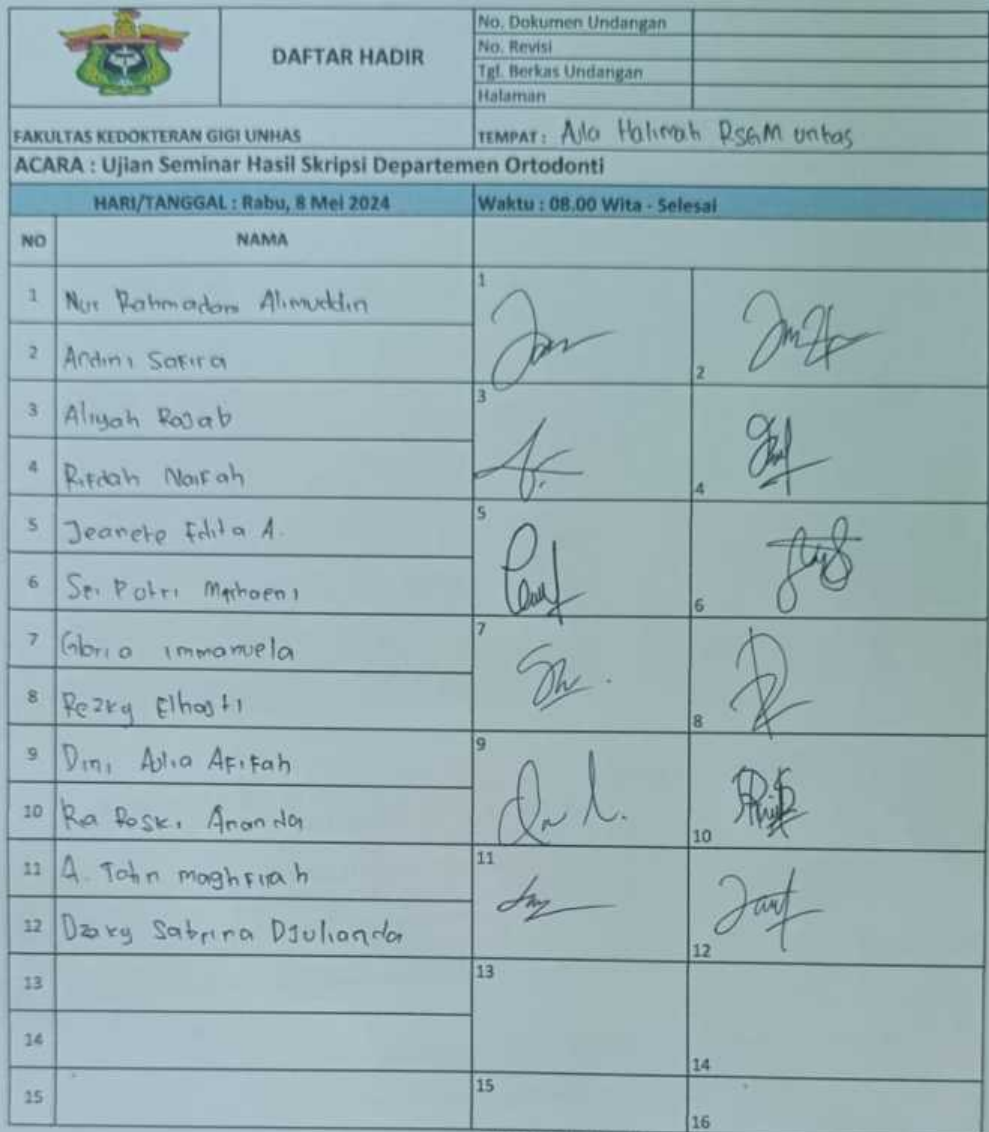 DAFTAR HADIR
No. Dokumen Undangan
No. Revisi
Tgl. Berkas Undangan
Halaman
FAKULTAS KEDOKTERAN GIGI UNHAS
TEMPAT : Aula Halimah RSGM unhas
ACARA : Ujian Seminar Hasil Skripsi Departemen Ortodonti
HARI/TANGGAL : Rabu, 8 Mei 2024 Waktu : 08.00 Wita - Selesai
NO NAMA
1 Nur Rahmadani Alimuddin 1
2 Andini Safira 2
3 Aliyah Rajab 3
4 Rifdah Naifah 4
5 Jeanete Edita A. 5
6 Sri Putri 6
7 Gloria immanuela 7
8 Rezky 8
9 Dini Aulia Afifah 9
10 Ra Ananda 10
11 A. maghfirah 11
12 Dzaky Sabrina Djulianda 12
13 13
14 14
15 15
16